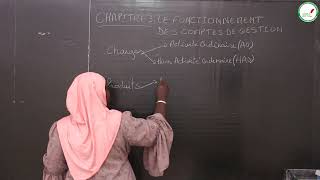 CHAPITRE3: LE FONCTIONNEMENT
DES COMPTES DE GESTION
Charges
Activité Ordinaire (AO)
Hors Activité Ordinaire (HAO)
Produits